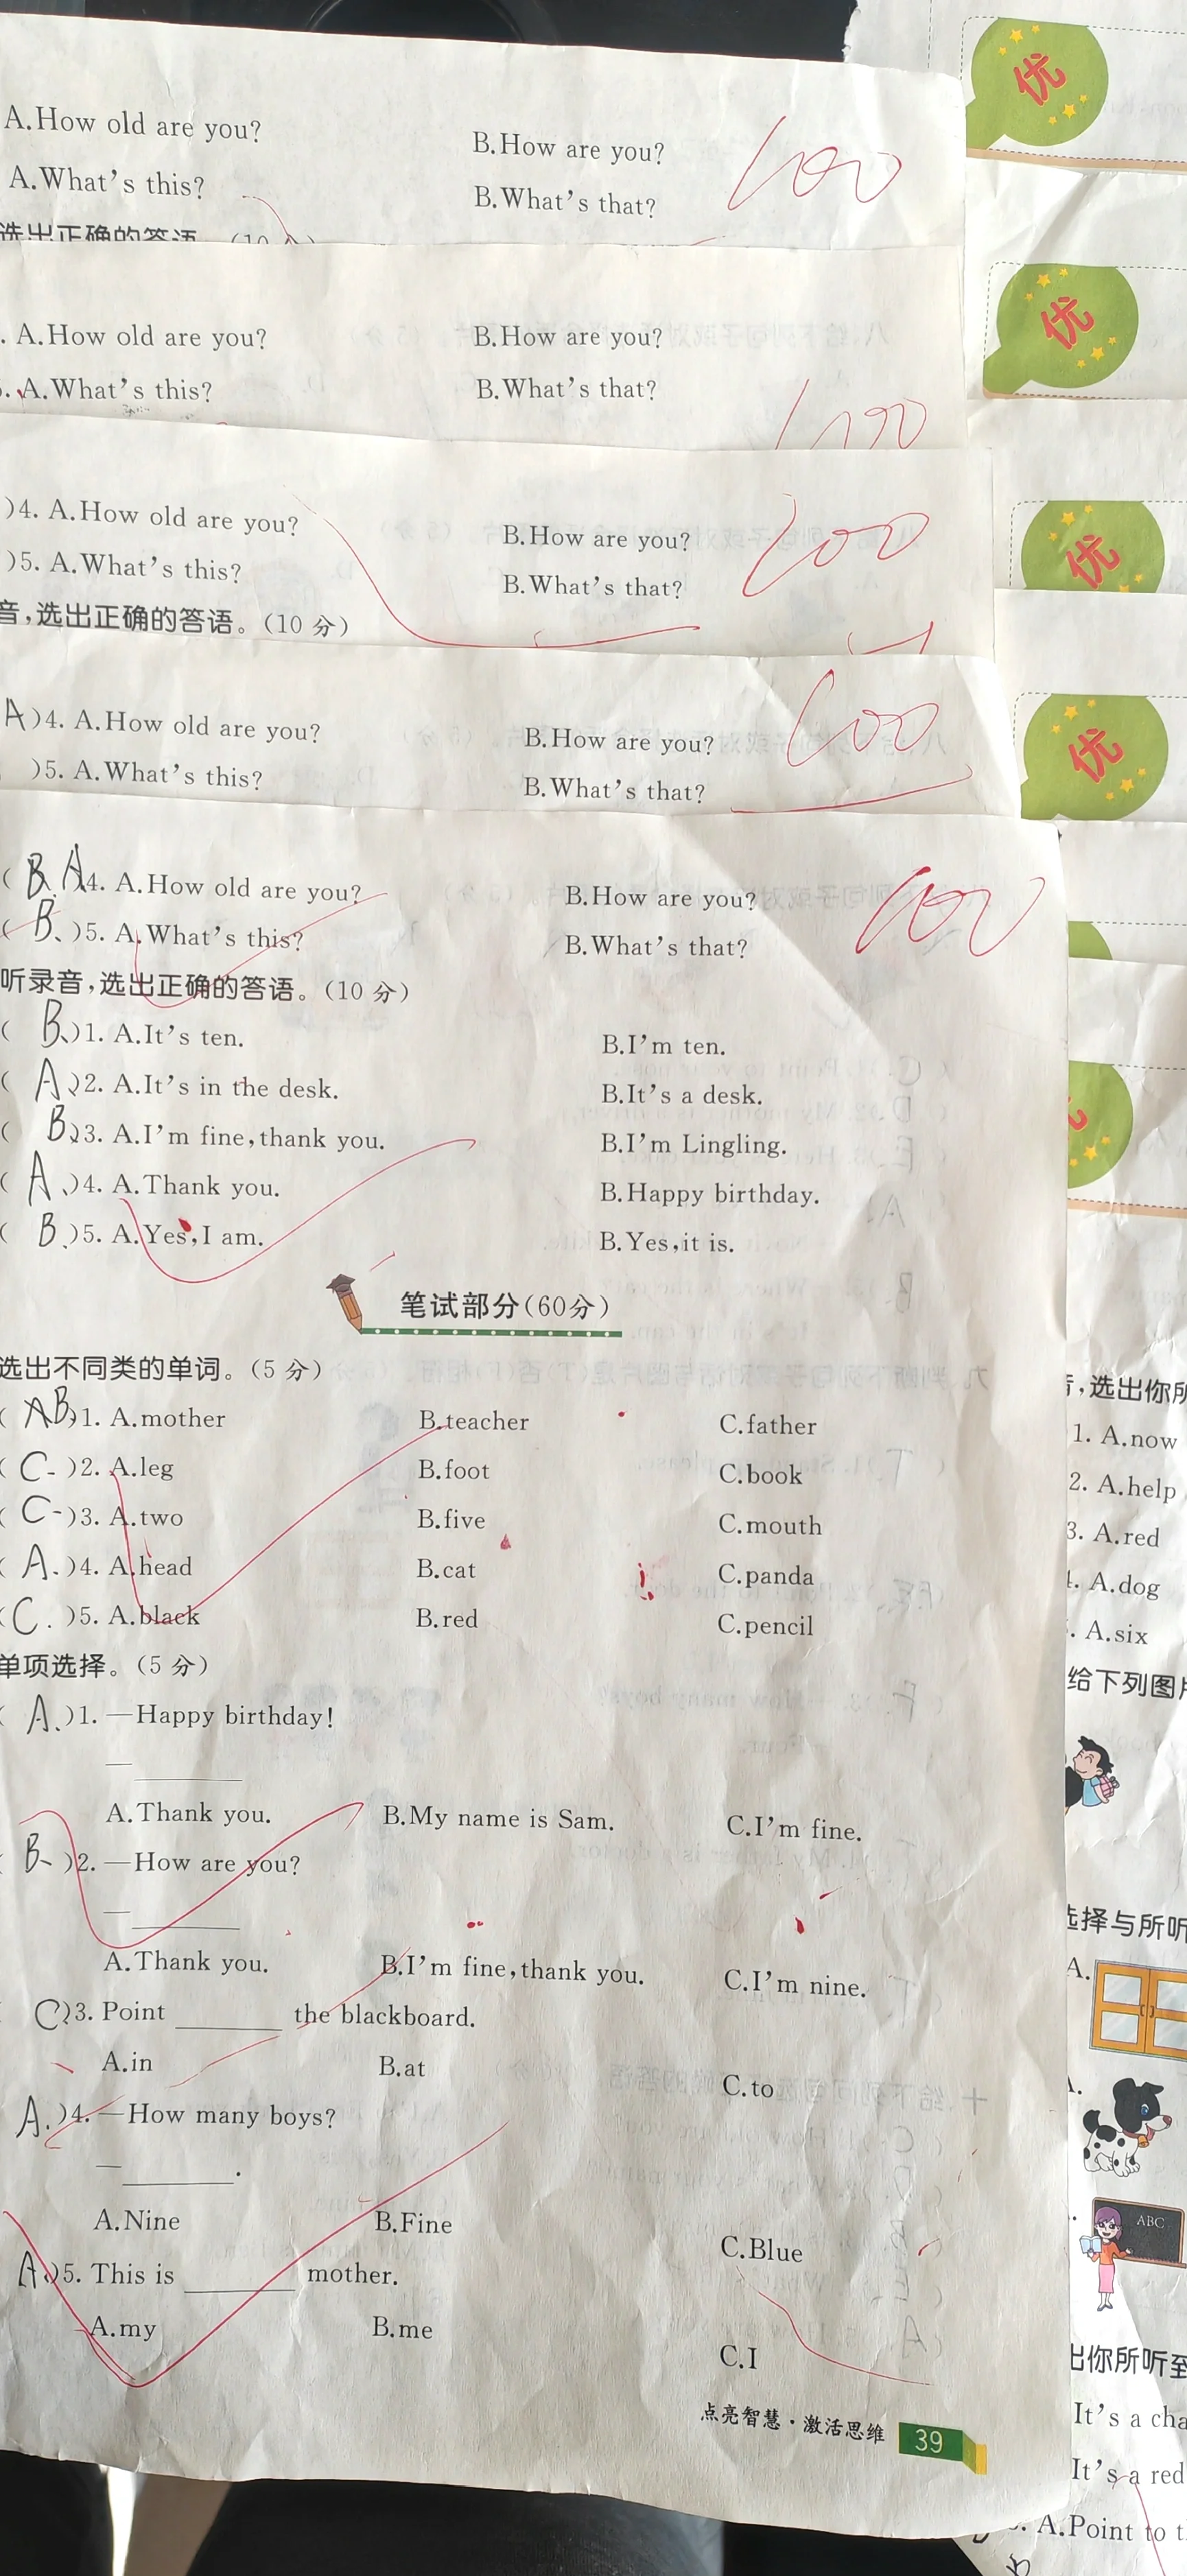 A.How old are you? B.How are you? 100
A.What's this? B.What's that?
选出正确的答语。(10分)
优
. A.How old are you? B.How are you?
. A.What's this? B.What's that? 100
优
)4. A.How old are you? B.How are you? 100
)5. A.What's this? B.What's that?
音,选出正确的答语。(10分)
优
A)4. A.How old are you? B.How are you? 100
)5. A.What's this? B.What's that?
优
( A)4. A.How old are you? B.How are you? 100
( B.)5. A.What's this? B.What's that?
听录音,选出正确的答语。(10分)
( B.)1. A.It's ten. B.I'm ten.
( A.)2. A.It's in the desk. B.It's a desk.
( B.)3. A.I'm fine,thank you. B.I'm Lingling.
( A.)4. A.Thank you. B.Happy birthday.
( B.)5. A.Yes,I am. B.Yes,it is.
笔试部分(60分)
选出不同类的单词。(5分)
( B)1. A.mother B.teacher C.father
( C.)2. A.leg B.foot C.book
( C.)3. A.two B.five C.mouth
( A.)4. A.head B.cat C.panda
( C.)5. A.black B.red C.pencil
单项选择。(5分)
( A.)1. —Happy birthday!
— ______
A.Thank you. B.My name is Sam. C.I'm fine.
B.)2. —How are you?
— ______
A.Thank you. B.I'm fine,thank you. C.I'm nine.
C)3. Point ______ the blackboard.
A.in B.at C.to
A.)4. —How many boys?
— ______.
A.Nine B.Fine C.Blue
A.)5. This is ______ mother.
A.my B.me C.I
点亮智慧·激活思维 39
,选出你所
1. A.now
2. A.help
3. A.red
. A.dog
. A.six
给下列图片
选择与所听
A.
ABC
出你所听到
It's a cha
It's a red
. A.Point to t